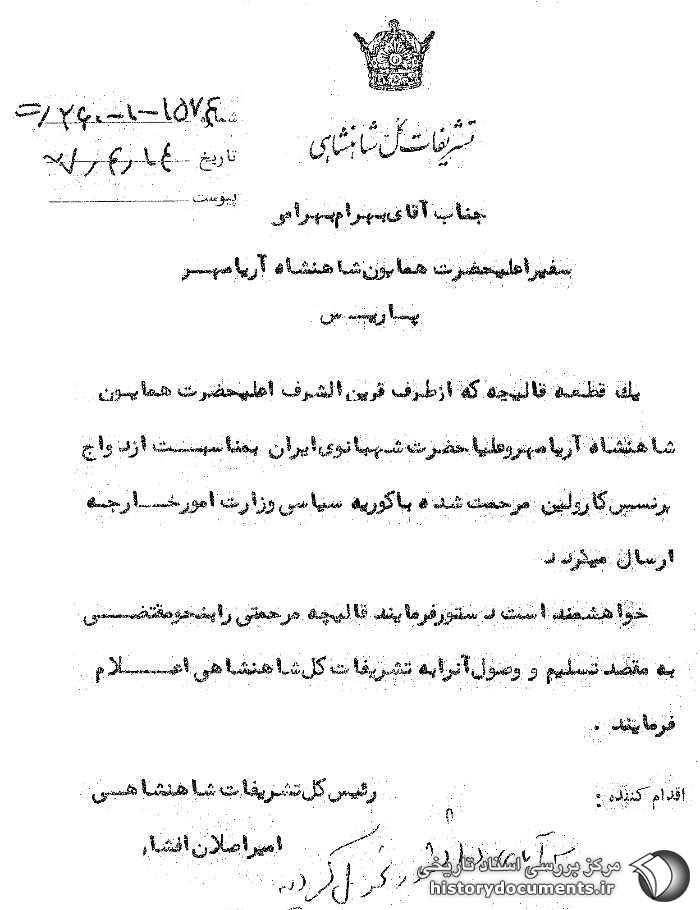 تشریفات کل شاهنشاهی
شماره ۱۵۷۴-۱-۲۶۰/
تاریخ
پیوست
جناب آقای بهرام بهرامی
سفیر اعلیحضرت همایون شاهنشاه آریامهر
پاریس
یك قطعه قالیچه که ازطرف قرین الشرف اعلیحضرت همایون
شاهنشاه آریامهر وعلیا حضرت شهبانوی ایران بمناسبت ازدواج
پرنسس کارولین مرحمت شده باکوریه سیاسی وزارت امورخارجه
ارسال میگردد
خواهشمند است دستورفرمایند قالیچه مرحمتی رابنحومقتضی
به مقصد تسلیم و وصول آنرابه تشریفات کل شاهنشاهی اعلام
فرمایند .
رئیس کل تشریفات شاهنشاهی
امیراصلان افشار
اقدام کننده :
مرکز بررسی اسناد تاریخی
historydocuments.ir